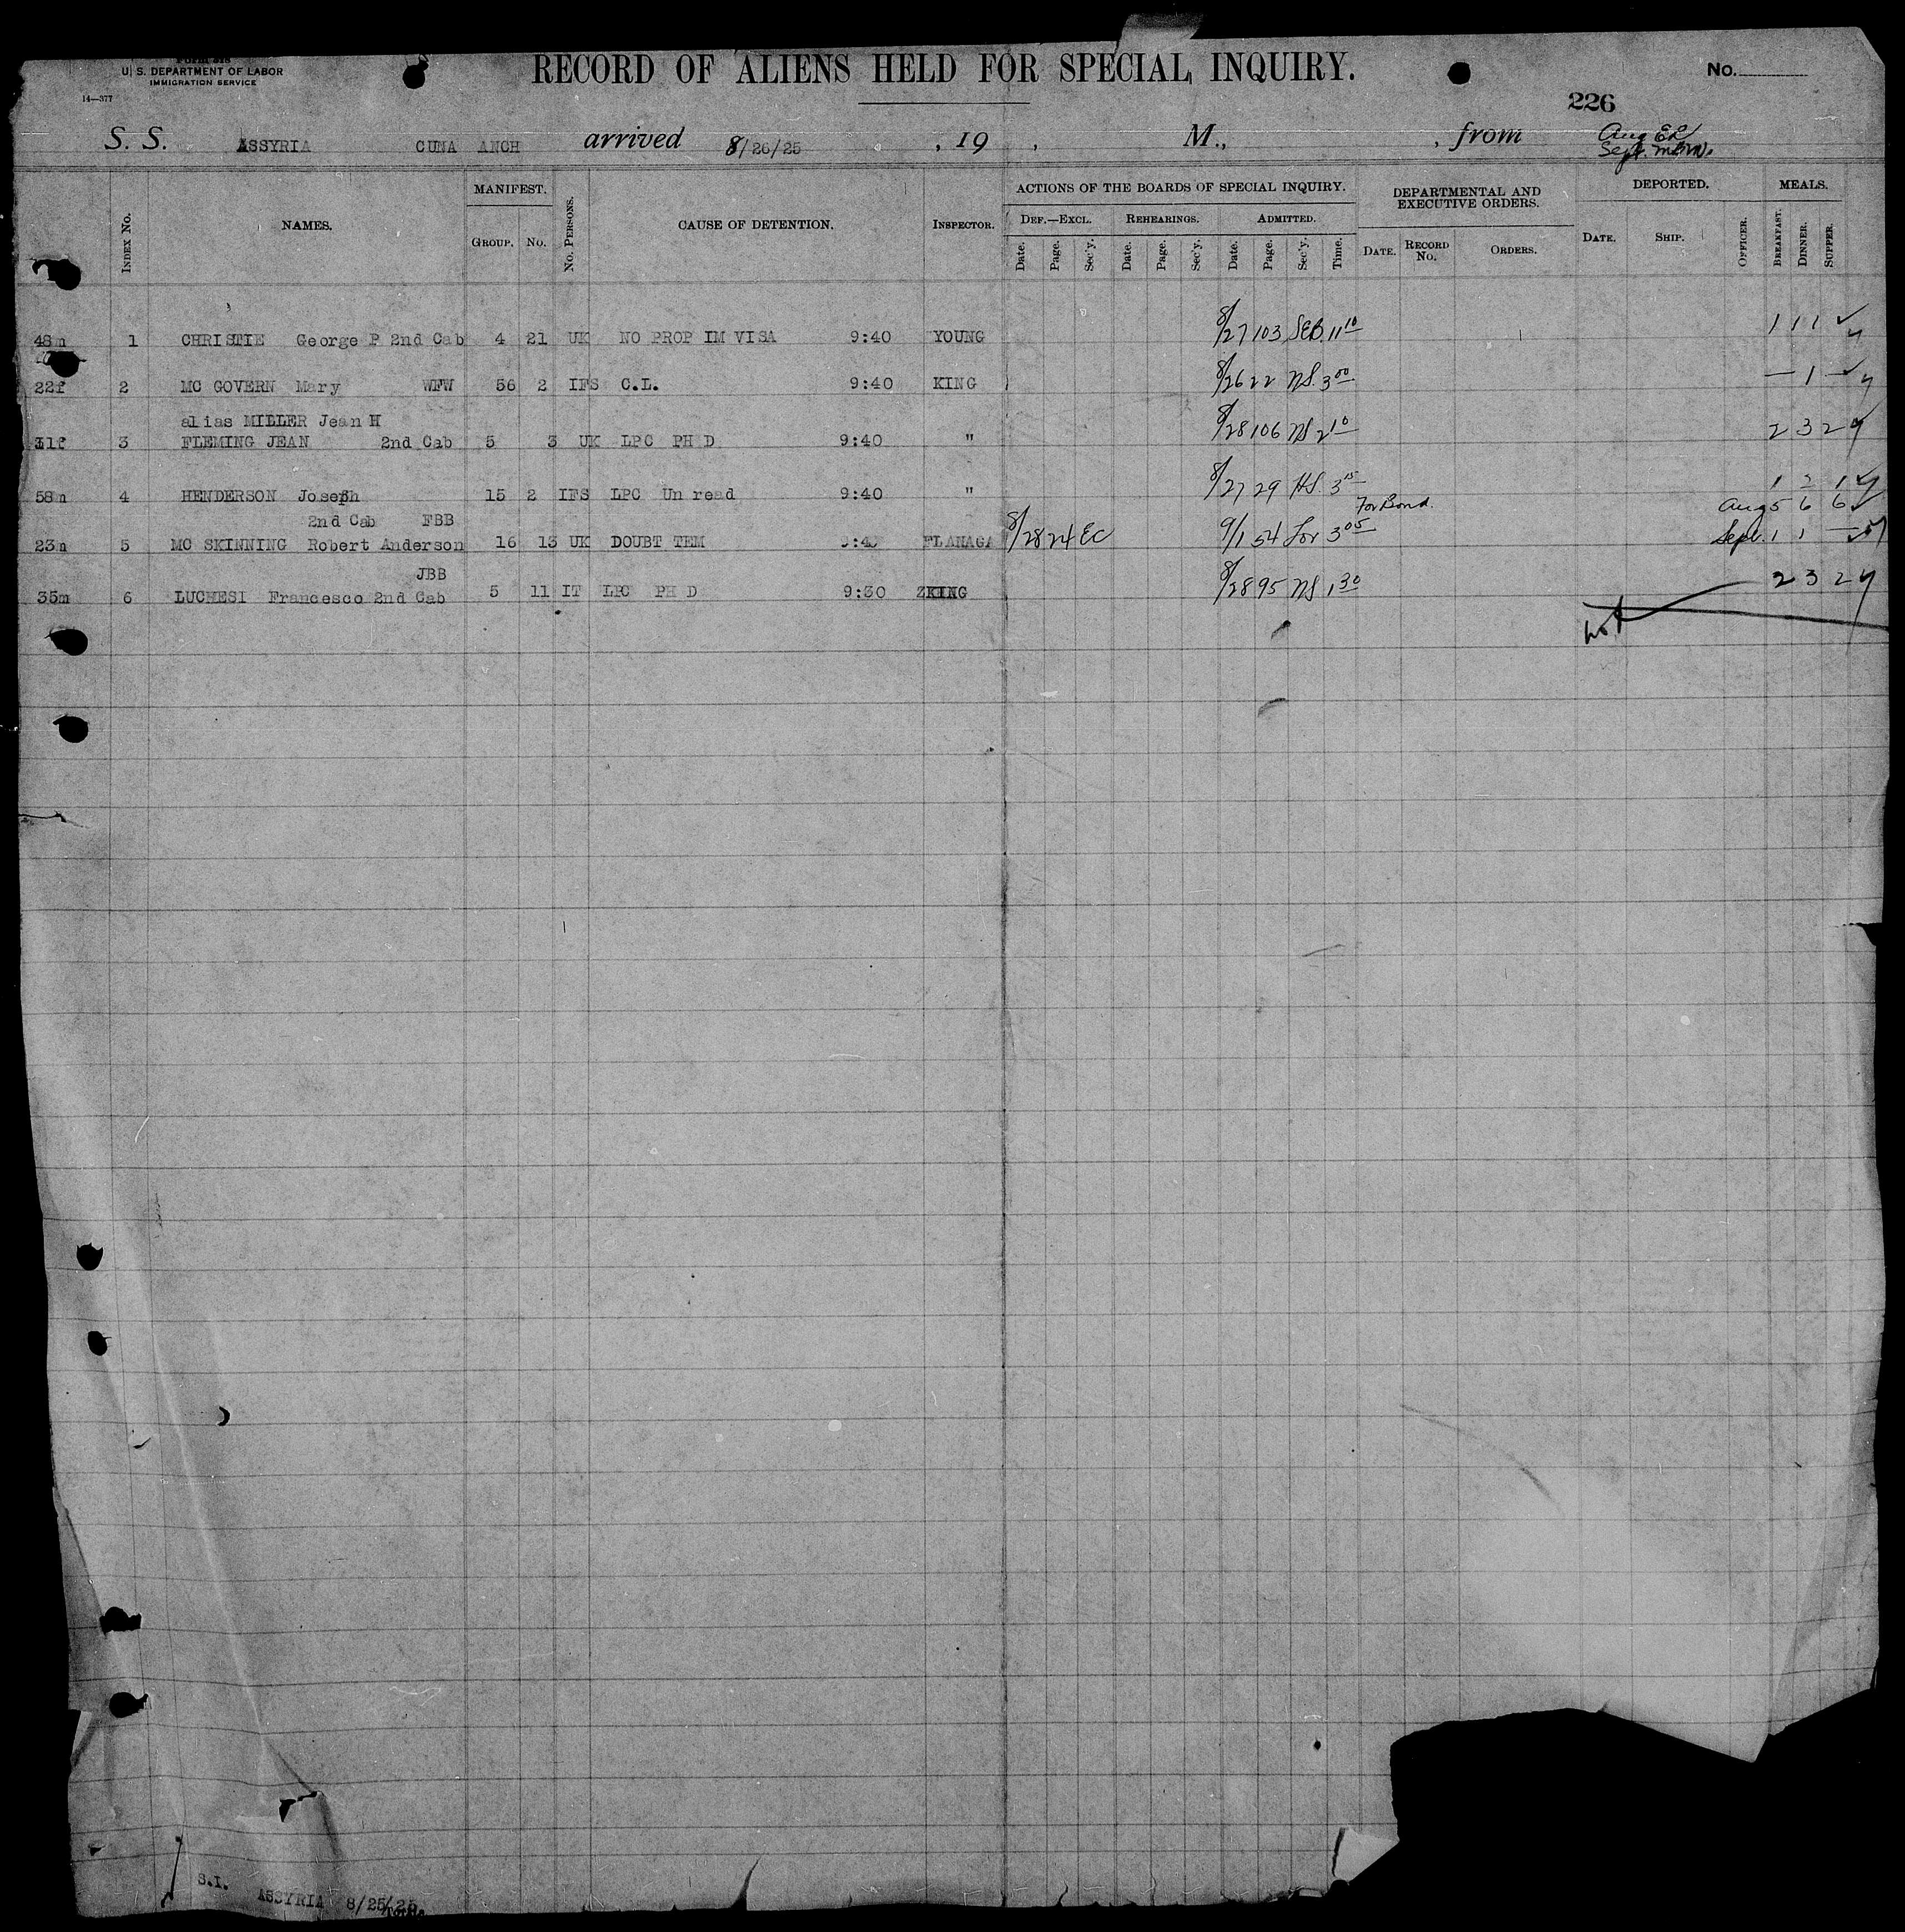 Form 518
U. S. DEPARTMENT OF LABOR
IMMIGRATION SERVICE
14—377
RECORD OF ALIENS HELD FOR SPECIAL INQUIRY.
No.
226
S. S. ASSYRIA CUNA ANCH arrived 8/26/25 , 19 , M., , from Aug ER
Sept.
INDEX No. NAMES. MANIFEST. GROUP. No. No. PERSONS. CAUSE OF DETENTION. INSPECTOR. ACTIONS OF THE BOARDS OF SPECIAL INQUIRY. DEF.—EXCL. Date. Page. Sec'y. REHEARINGS. Date. Page. Sec'y. ADMITTED. Date. Page. Sec'y. Time. DEPARTMENTAL AND EXECUTIVE ORDERS. DATE. RECORD No. ORDERS. DEPORTED. DATE. SHIP. OFFICER. MEALS. BREAKFAST. DINNER. SUPPER.
48m 1 CHRISTIE George P 2nd Cab 4 21 UK NO PROP IM VISA 9:40 YOUNG 8/27 103 SEB. 11 10 1 1 1
22f 2 MC GOVERN Mary WFW 56 2 IFS C.L. 9:40 KING 8/26 22 NS. 3 00 — 1 —
alias MILLER Jean H
31f 3 FLEMING JEAN 2nd Cab 5 3 UK LPC PH D 9:40 " 8/28 106 NS 2 10 2 3 2
58m 4 HENDERSON Joseph 15 2 IFS LPC Un read 9:40 " 8/27 29 HS. 3 15 1 2 1
2nd Cab FBB For Bond. Aug 5 6 6
23m 5 MC SKINNING Robert Anderson 16 13 UK DOUBT TEM 9:40 FLANAGA 8/28 24 EC 9/1 54 Lor 3 05 Sept. 1 1 —
JBB
35m 6 LUCHESI Francesco 2nd Cab 5 11 IT LPC PH D 9:30 ZKING 8/28 95 NS 1 30 2 3 2
S.I. ASSYRIA 8/25/25